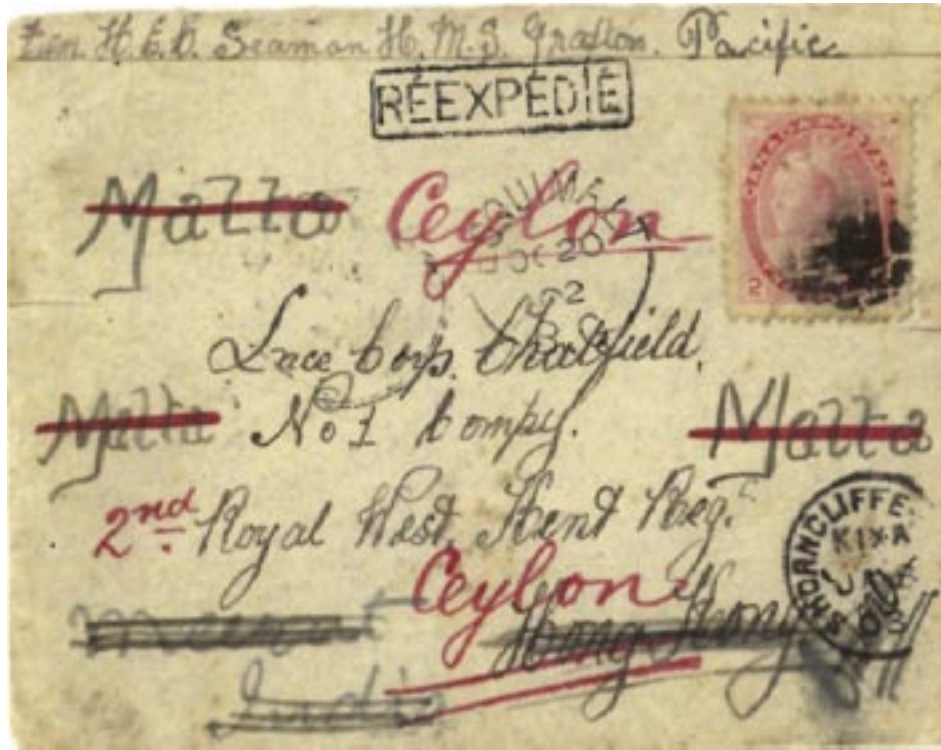 From H. E. D. Seaman H. M. S. Grafton. Pacific
RÉEXPÉDIÉ
Malta Ceylon
OC 20
02
Lnce Corp. Chatfield.
Malta No 1 Compy. Malta
2nd Royal West Kent Reg.t
SHORNCLIFFE
Ceylon
Hong Kong
India
2